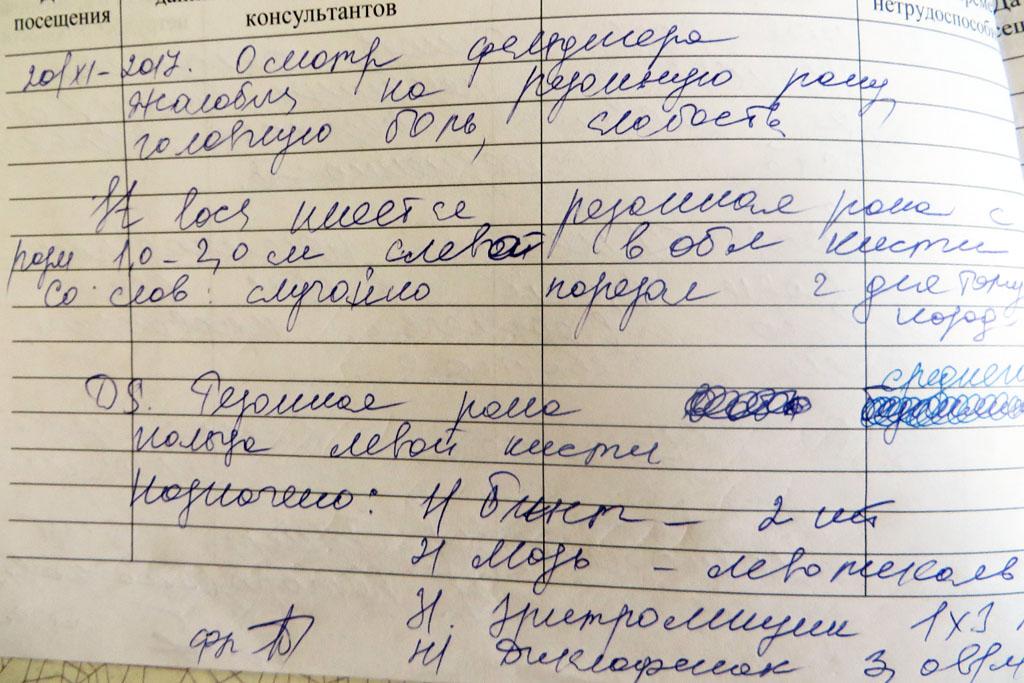 посещения
консультантов
нетрудоспособн
20/XI-2017. Осмотр фельдшера
Жалобы на резанную рану,
головную боль, слабость
имеется резанная рана с
разм 1,0 - 2,0 см с левой в обл кисти
со слов: случайно порезал 2 дня тому
назад
среднего
DS. Резанная рана
пальца левой кисти
Назначено: Н бинт - 2 шт
Н мазь - левомеколь
Н. Эритромицин 1х3
Н Диклофенак 3,0 в/м
фп